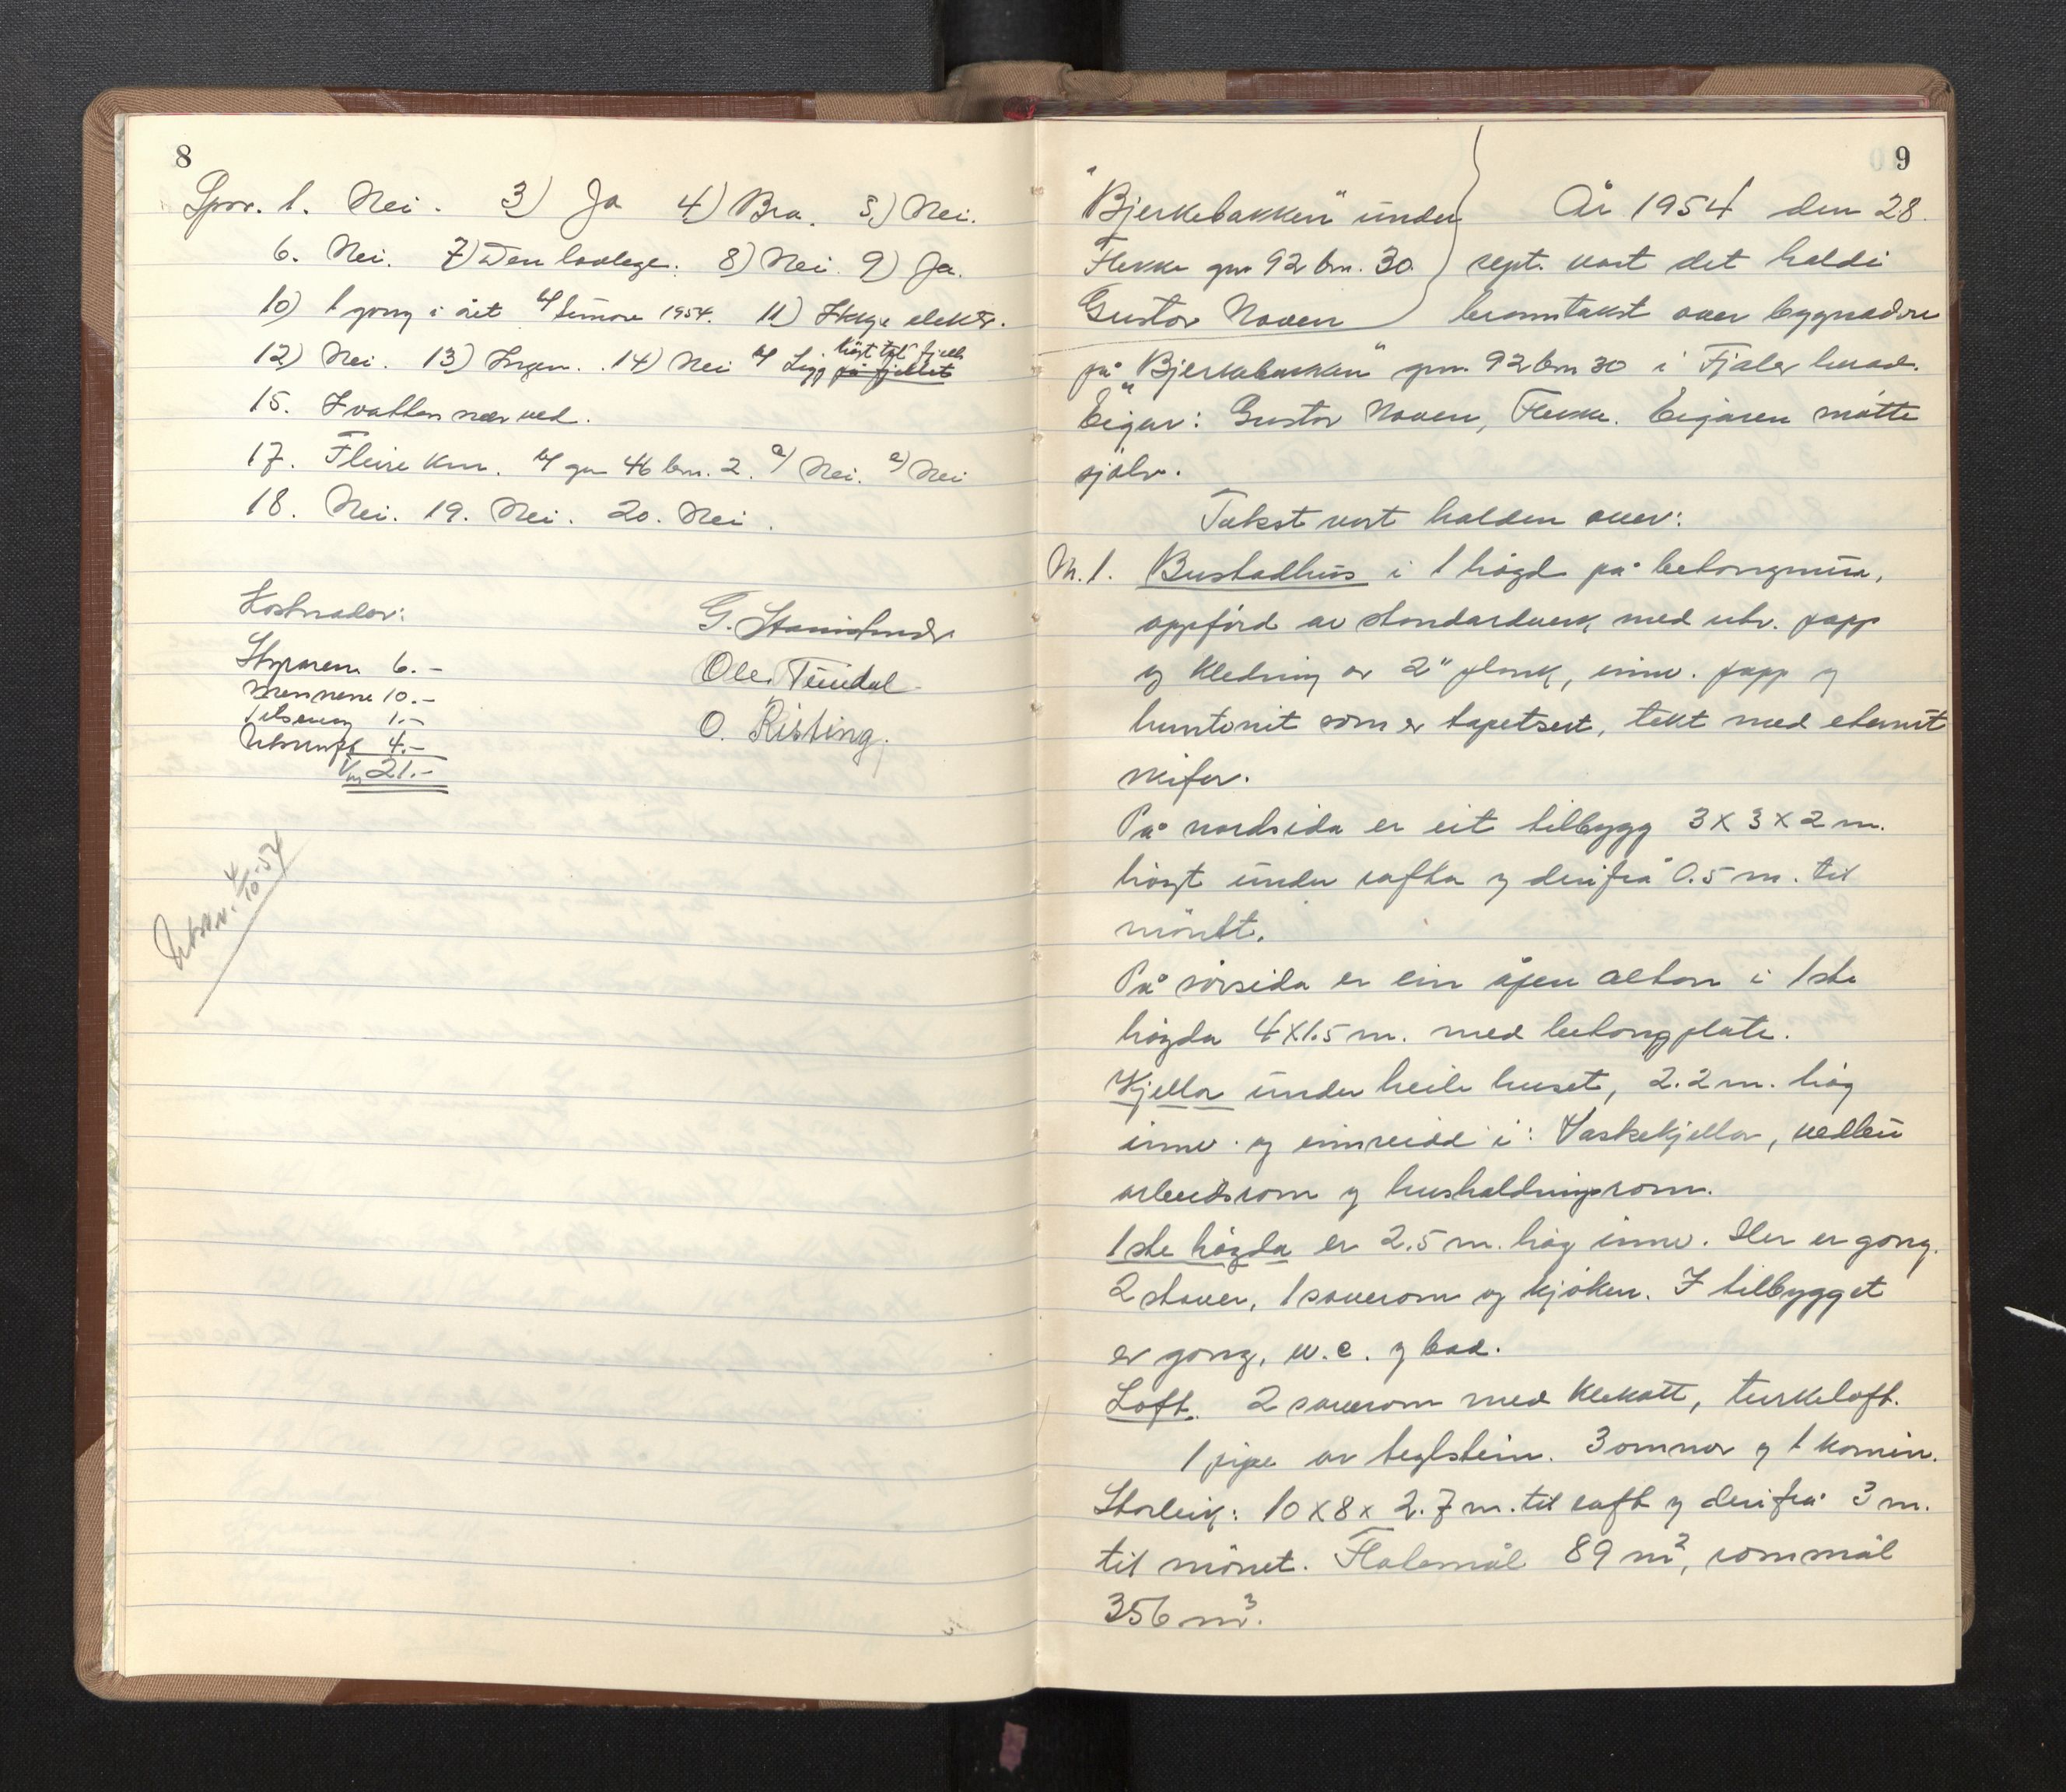 8
Spør. 1. Nei. 3) Ja 4) Bra. 5.) Nei.
6. Nei. 7) Den lovlege. 8) Nei. 9) Ja.
10) 1 gong i året 1954. 11) Ikkje elektr.
12) Nei. 13) Ingen. 14) Nei b) Ligg på fjellet høgt til fjells
15. I vatten nær ved.
17. Fleire km. b) gn 46 bn. 2. Nei. e) Nei
18. Nei. 19. Nei. 20. Nei.
Kostnader:
Styraren 6.-
Mennene 10.-
1.-
Utskrift 4.-
21.-
G.
Ole Tundal
O. Risting.
Utskr. 4/10-54
9
"Bjerkebakken" under
Flekke gnr 92 bn. 30.
Gustav Hoven
År 1954 den 28.
sept. vart det halde
branntakst over bygnadene
på "Bjerkebakken" gnr. 92 bn 30 i Fjaler herad.
Eigar: Gustav Hoven, Flekke. Eigaren møtte
sjølv.
Takst vart halden over:
M. 1. Bustadhus i 1 høgd på betongmur,
oppførd av standardverk med utv. papp
og kledning av 2" plank, innv. papp og
huntonit som er tapetsert, tekt med eternit
skifer.
På nordsida er eit tilbygg 3 x 3 x 2 m.
høgt under rafta og derifrå 0.5 m. til
mønet.
På sørsida er ein åpen altan i 1ste
høgda 4x1.5 m. med betongplate.
Kjellar under heile huset, 2.2 m. høg
innv. og innreidd i: Vaskekjellar, vedbu
arbeidsrom og hushaldningsrom.
1ste høgda er 2.5 m. høg innv. Her er gong.
2 stover, 1 soverom og kjøken. I tilbygget
er gong, w.c. og bad.
Loft. 2 soverom med klekott, turkeloft.
1 pipe av teglstein. 3 omnar og 1 komin.
Storleik: 10 x 8 x 2.7 m. til raft og derifrå 3 m.
til mønet. Flatemål 89 m², rommål
356 m³.